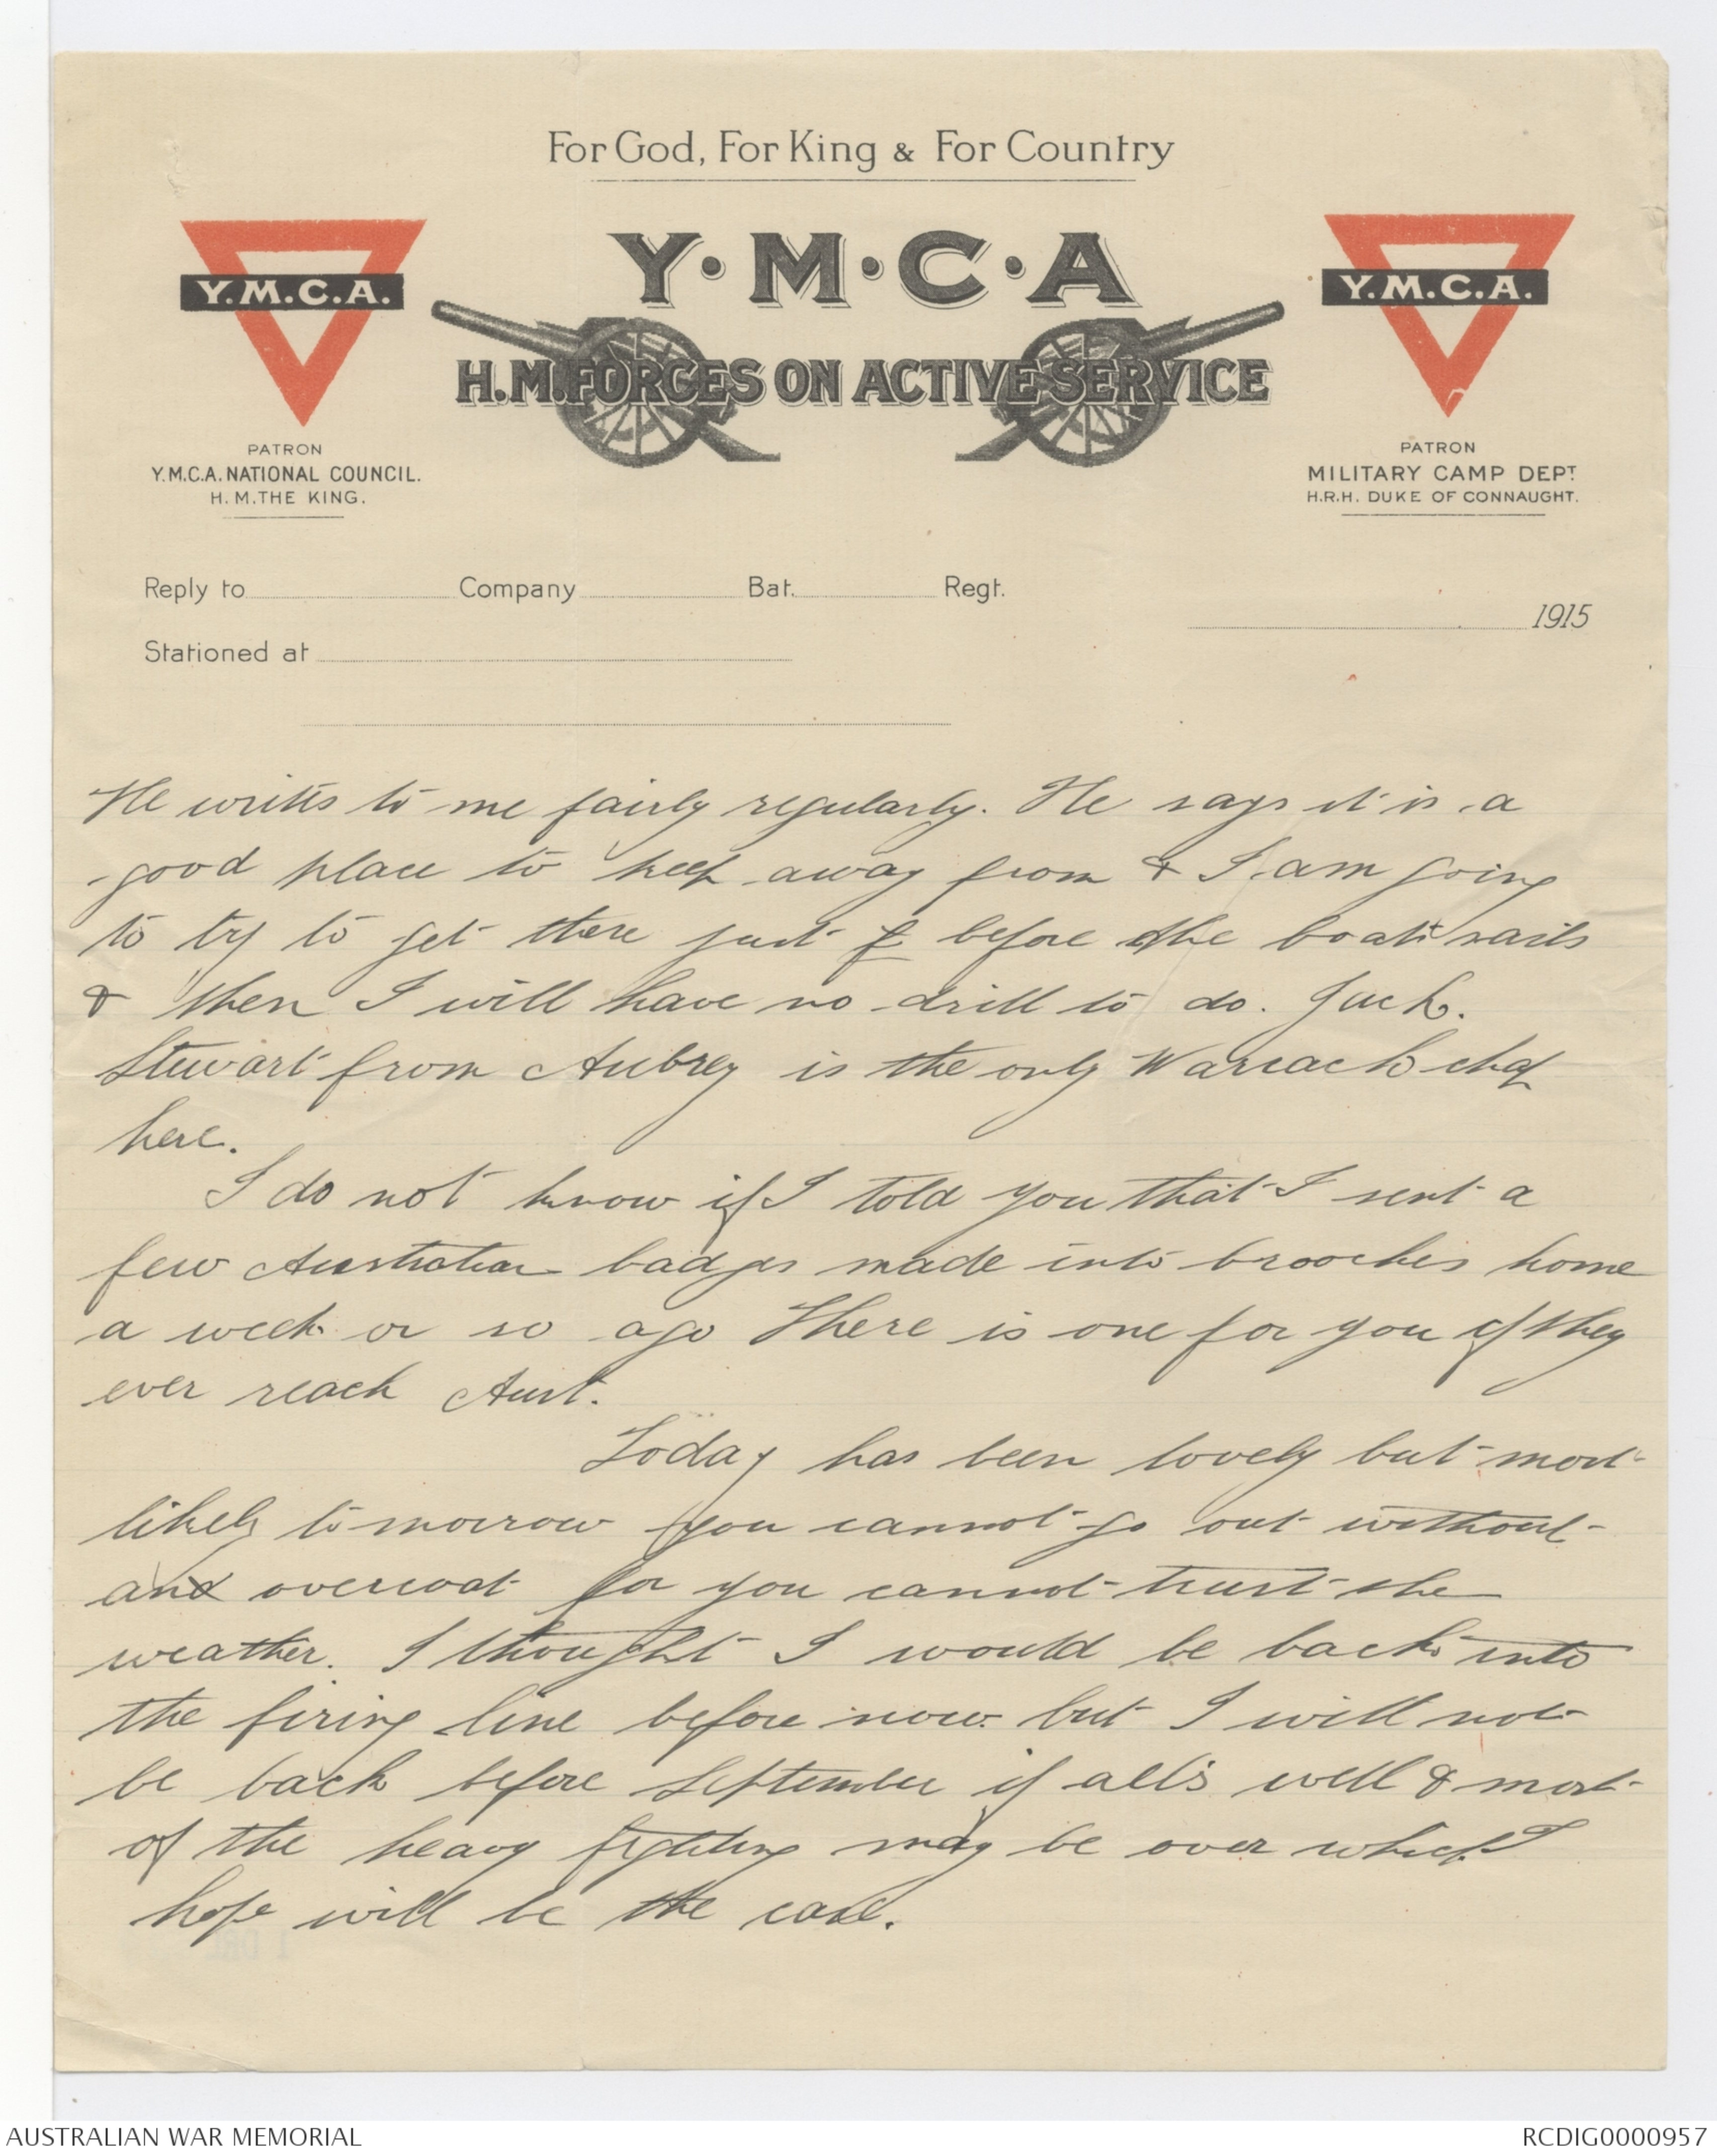 For God, For King & For Country
Y.M.C.A.
Y·M·C·A
Y.M.C.A.
H.M. FORCES ON ACTIVE SERVICE
PATRON
Y.M.C.A. NATIONAL COUNCIL.
H.M. THE KING.
PATRON
MILITARY CAMP DEPT.
H.R.H. DUKE OF CONNAUGHT.
Reply to Company Bat. Regt.
1915
Stationed at
He writes to me fairly regularly. He says it is a
good place to keep away from & I am going
to try to get there just f before the boat sails
& then I will have no drill to do. Jack.
Stewart from Aubrey is the only Warrack chap
here.
I do not know if I told you that I sent a
few Australian badges made into brooches home
a week or so ago There is one for you if they
ever reach Aust.
Today has been lovely but most
likely tomorrow you cannot go out without
and overcoat for you cannot trust the
weather. I thought I would be back into
the firing line before now but I will not
be back before September if all's well & most
of the heavy fighting may be over which I
hope will be the case.
AUSTRALIAN WAR MEMORIAL
RCDIG0000957